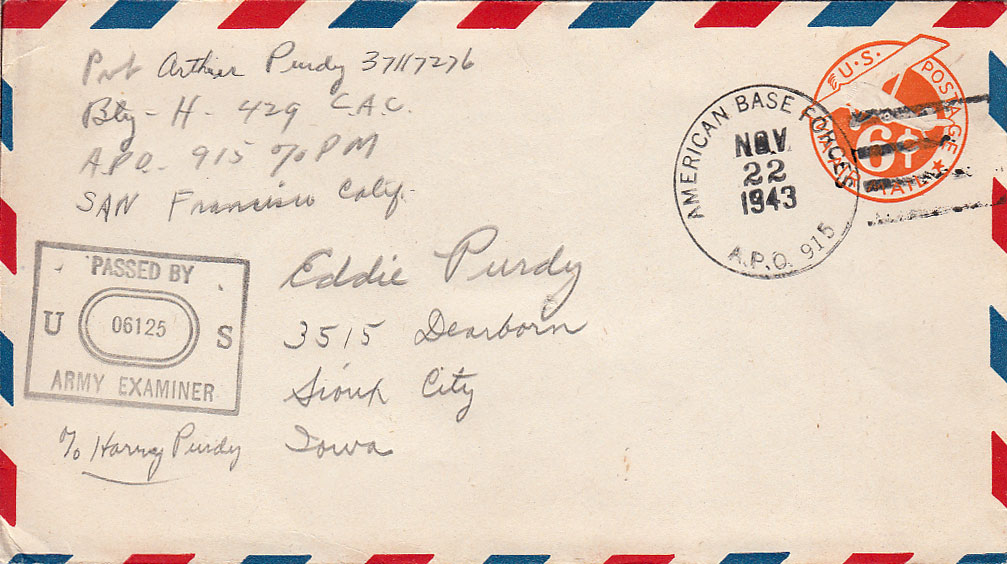 Pvt Arthur Purdy 37117276
Bty - H - 429 C.A.C.
A.P.O. 915 c/o PM
SAN Francisco Calif.
U.S. POSTAGE
6¢
AIR MAIL
AMERICAN BASE FORCES
NOV.
22
1943
A.P.O. 915
PASSED BY
U 06125 S
ARMY EXAMINER
Eddie Purdy
3515 Dearborn
Sioux City
Iowa
c/o Harry Purdy